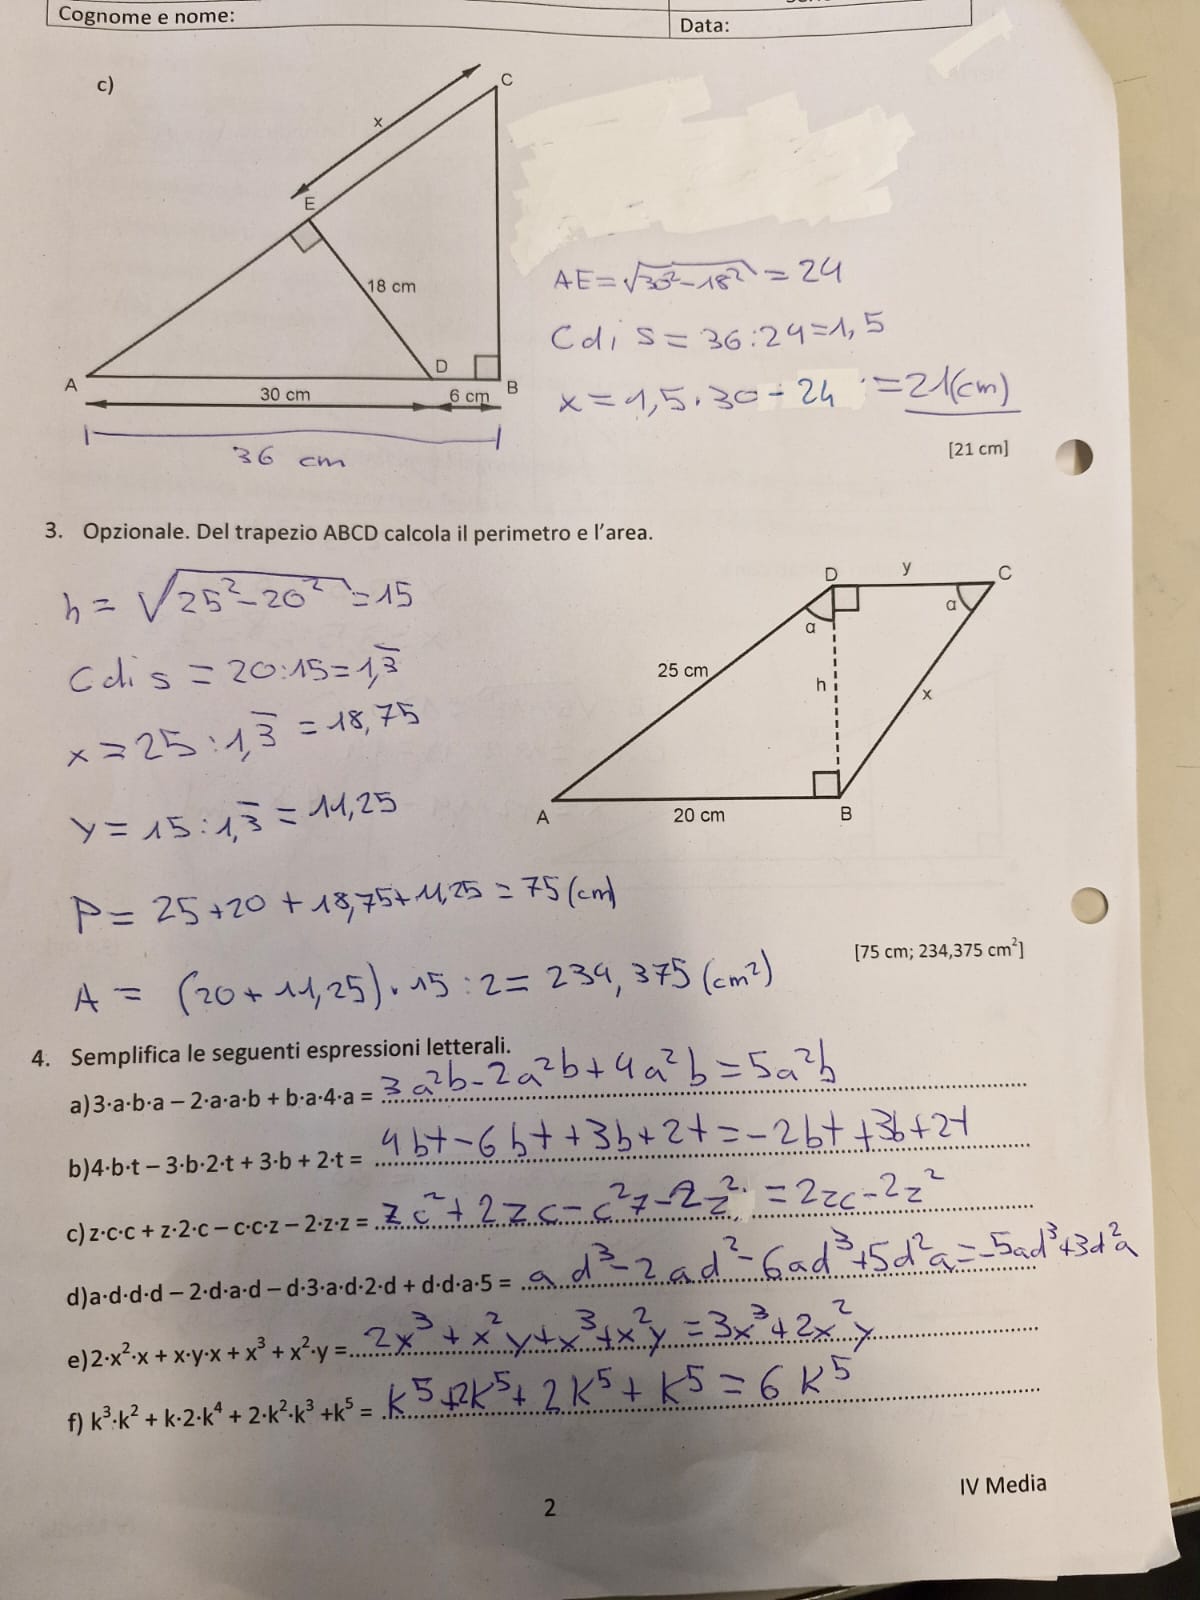 Cognome e nome:
Data:
c)
C
x
E
18 cm
D
A
B
30 cm
6 cm
36 cm
AE = √30²-18² = 24
C di s = 36:24=1,5
x = 1,5·30 - 24 = 21(cm)
[21 cm]
3. Opzionale. Del trapezio ABCD calcola il perimetro e l'area.
h = √25²-20² = 15
C di s = 20:15 = 1,3̅
x = 25 : 1,3̅ = 18,75
y = 15 : 1,3̅ = 11,25
D
y
C
α
α
25 cm
h
x
A
20 cm
B
P = 25+20 + 18,75+11,25 = 75 (cm)
[75 cm; 234,375 cm²]
A = (20+11,25)·15 : 2 = 234,375 (cm²)
4. Semplifica le seguenti espressioni letterali.
a)3·a·b·a – 2·a·a·b + b·a·4·a = 3a²b-2a²b+4a²b=5a²b
b)4·b·t – 3·b·2·t + 3·b + 2·t = 4bt-6bt+3b+2t=-2bt+3b+2t
c)z·c·c + z·2·c – c·c·z – 2·z·z = zc²+2zc-c²z-2z² = 2zc-2z²
d)a·d·d·d – 2·d·a·d – d·3·a·d·2·d + d·d·a·5 = ad³-2ad²-6ad³+5d²a=-5ad³+3d²a
e)2·x²·x + x·y·x + x³ + x²·y = 2x³+x²y+x³+x²y=3x³+2x²y
f) k³·k² + k·2·k⁴ + 2·k²·k³ +k⁵ = k⁵+2k⁵+2k⁵+k⁵=6k⁵
IV Media
2